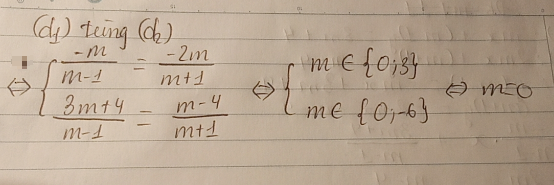 (d₁) trùng (d₂)
⇔ { -m/(m-1) = -2m/(m+1) ; (3m+4)/(m-1) = (m-4)/(m+1) ⇔ { m ∈ {0;3} ; m ∈ {0;-6} ⇔ m=0